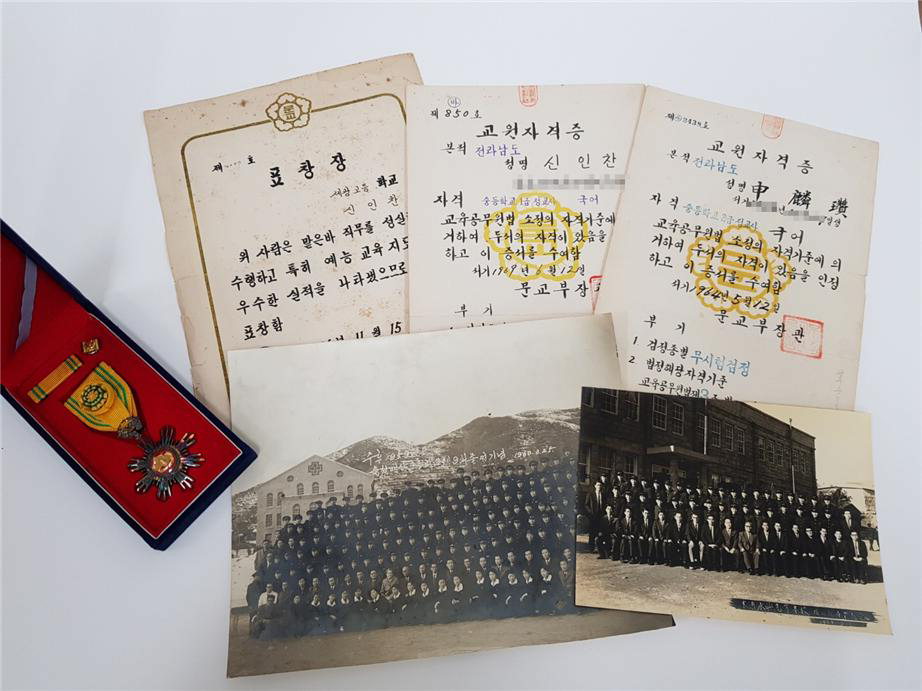 제 호
표창장
고등 학교
신인찬
위 사람은 맡은바 직무를 성실
수행하고 특히 예능 교육 지도
우수한 실적을 나타냈으므로
표창함
11월 15
바
제 850 호
교원자격증
본적 전라남도
성명 신인찬
자격 중등학교 1급 정교사 국어
교육공무원법 소정의 자격기준에
거하여 두서의 자격이 있음을
하고 이 증서를 수여함
서기 1969년 6월 12일
문교부장
부기
교원자격증
본적 전라남도
성명 申麟瓚
자격 중등학교 2급 정교사
국어
교육공무원법 소정의 자격기준에 의
거하여 두서의 자격이 있음을 인정
하고 이 증서를 수여함
서기 1964년 5월 12일
문교부장관
부기
1 검정종별 무시험검정
2 법정해당자격기준
교육공무원법제3조
기념 1960.2.25